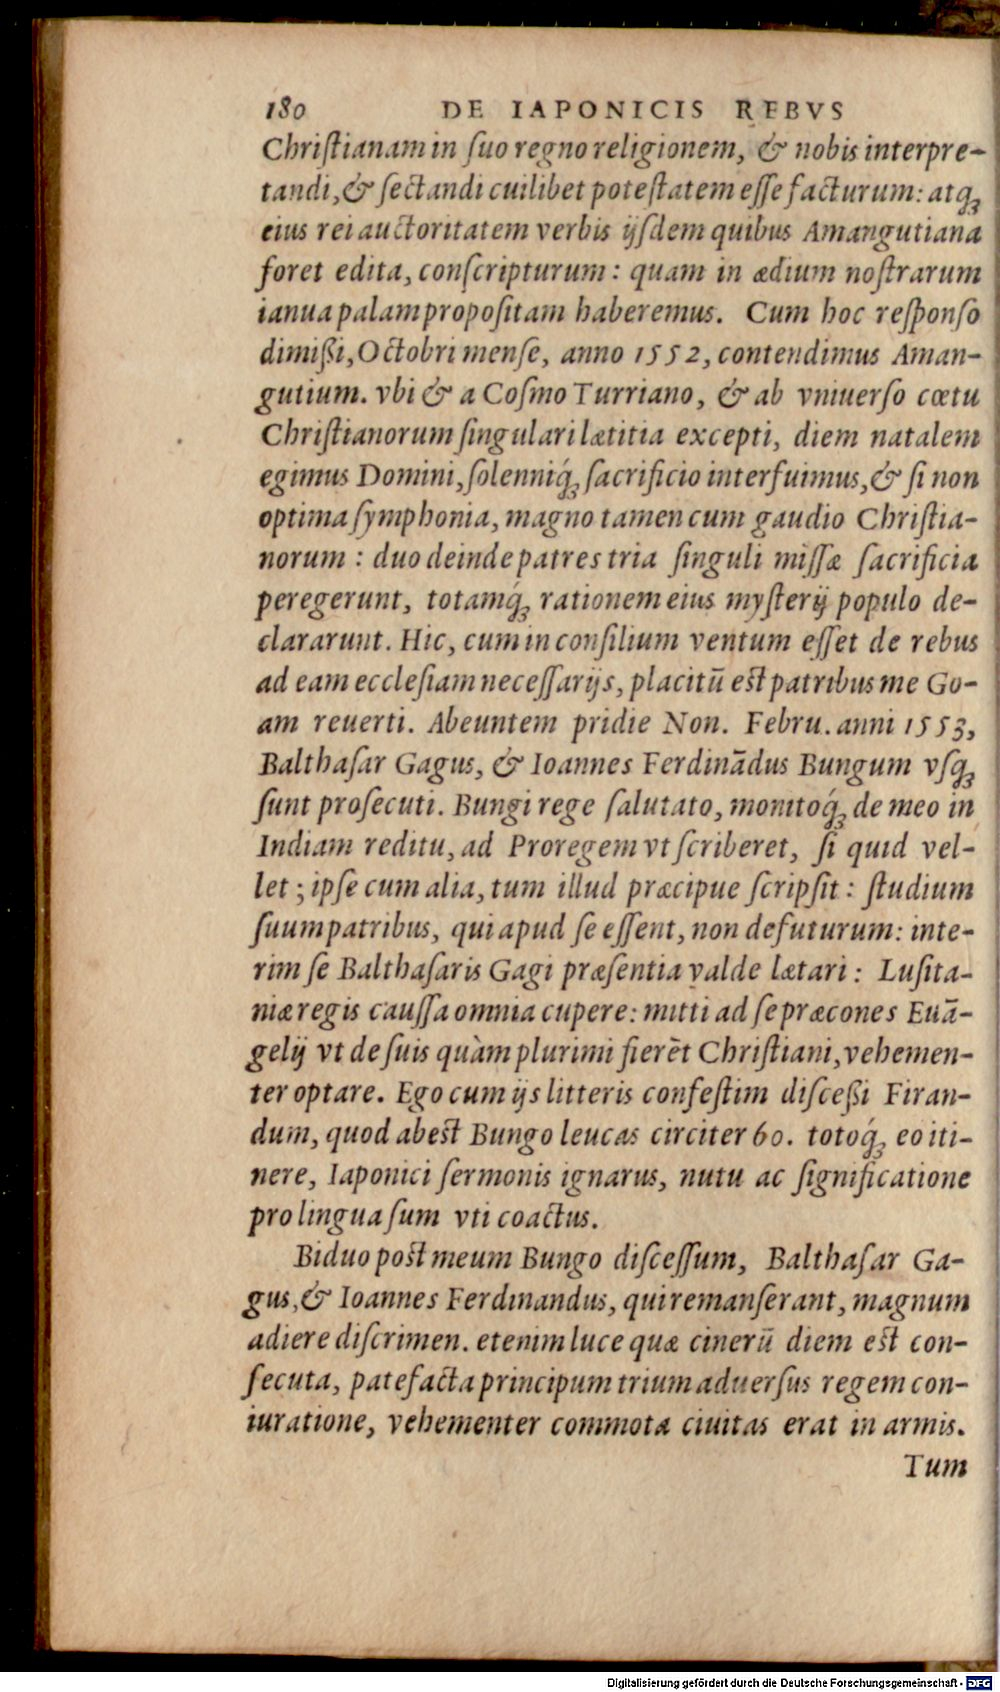 180 DE IAPONICIS REBVS
Chriſtianam in ſuo regno religionem, & nobis interpre-
tandi, & ſectandi cuilibet poteſtatem eſſe facturum: atq́ꝫ
eius rei auctoritatem verbis ijſdem quibus Amangutiana
foret edita, conſcripturum: quam in ædium noſtrarum
ianua palam propoſitam haberemus. Cum hoc reſponſo
dimißi, Octobri menſe, anno 1552, contendimus Aman-
gutium. vbi & a Coſmo Turriano, & ab vniuerſo cœtu
Chriſtianorum ſingulari lætitia excepti, diem natalem
egimus Domini, ſolenniq́ꝫ ſacrificio interfuimus, & ſi non
optima ſymphonia, magno tamen cum gaudio Chriſtia-
norum: duo deinde patres tria ſinguli miſſæ ſacrificia
peregerunt, totamq́ꝫ rationem eius myſterij populo de-
clararunt. Hic, cum in conſilium ventum eſſet de rebus
ad eam eccleſiam neceſſarijs, placitū eſt patribus me Go-
am reuerti. Abeuntem pridie Non. Febru. anni 1553,
Balthaſar Gagus, & Ioannes Ferdinādus Bungum vſqꝫ
ſunt proſecuti. Bungi rege ſalutato, monitoq́ꝫ de meo in
Indiam reditu, ad Proregem vt ſcriberet, ſi quid vel-
let; ipſe cum alia, tum illud præcipue ſcripſit: ſtudium
ſuum patribus, qui apud ſe eſſent, non defuturum: inte-
rim ſe Balthaſaris Gagi præſentia valde lætari: Luſita-
niæ regis cauſſa omnia cupere: mitti ad ſe præcones Euā-
gelij vt de ſuis quàm plurimi fierēt Chriſtiani, vehemen-
ter optare. Ego cum ijs litteris confeſtim diſceßi Firan-
dum, quod abeſt Bungo leucas circiter 60. totoq́ꝫ eo iti-
nere, Iaponici ſermonis ignarus, nutu ac ſignificatione
pro lingua ſum vti coactus.
Biduo poſt meum Bungo diſceſſum, Balthaſar Ga-
gus, & Ioannes Ferdinandus, qui remanſerant, magnum
adiere diſcrimen. etenim luce quæ cinerū diem eſt con-
ſecuta, patefacta principum trium aduerſus regem con-
iuratione, vehementer commota ciuitas erat in armis.
Tum
Digitalisierung gefördert durch die Deutsche Forschungsgemeinschaft - DFG